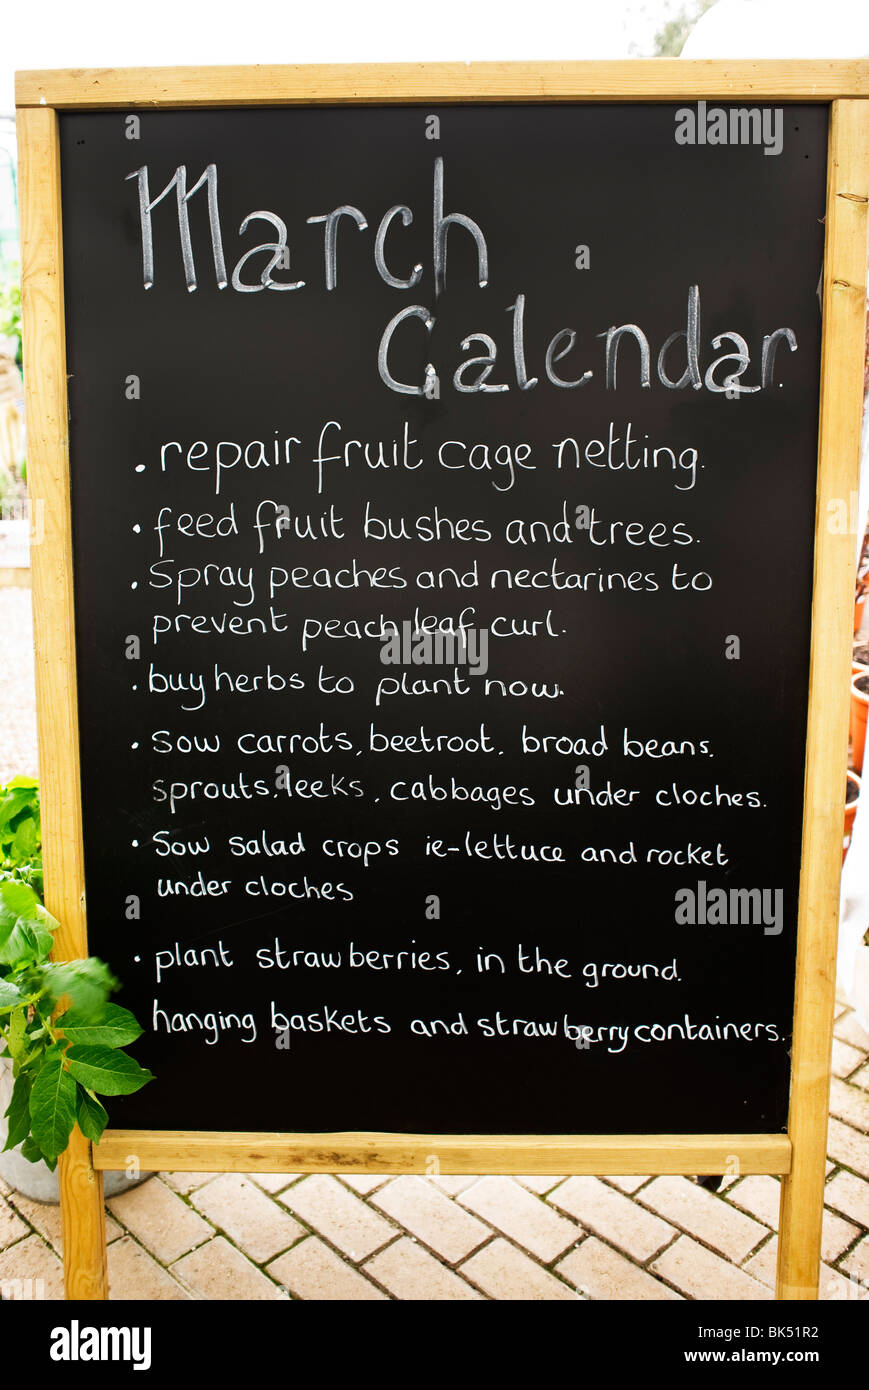 March
Calendar.
. repair fruit cage netting.
. feed fruit bushes and trees.
. Spray peaches and nectarines to
prevent peach leaf curl.
. buy herbs to plant now.
. Sow carrots, beetroot, broad beans,
sprouts, leeks, cabbages under cloches.
. Sow salad crops ie-lettuce and rocket
under cloches
. plant strawberries, in the ground.
hanging baskets and strawberry containers.
alamy
alamy
alamy
a
a
a
a
a
a
a
a
a
a
a
alamy
Image ID: BK51R2
www.alamy.com